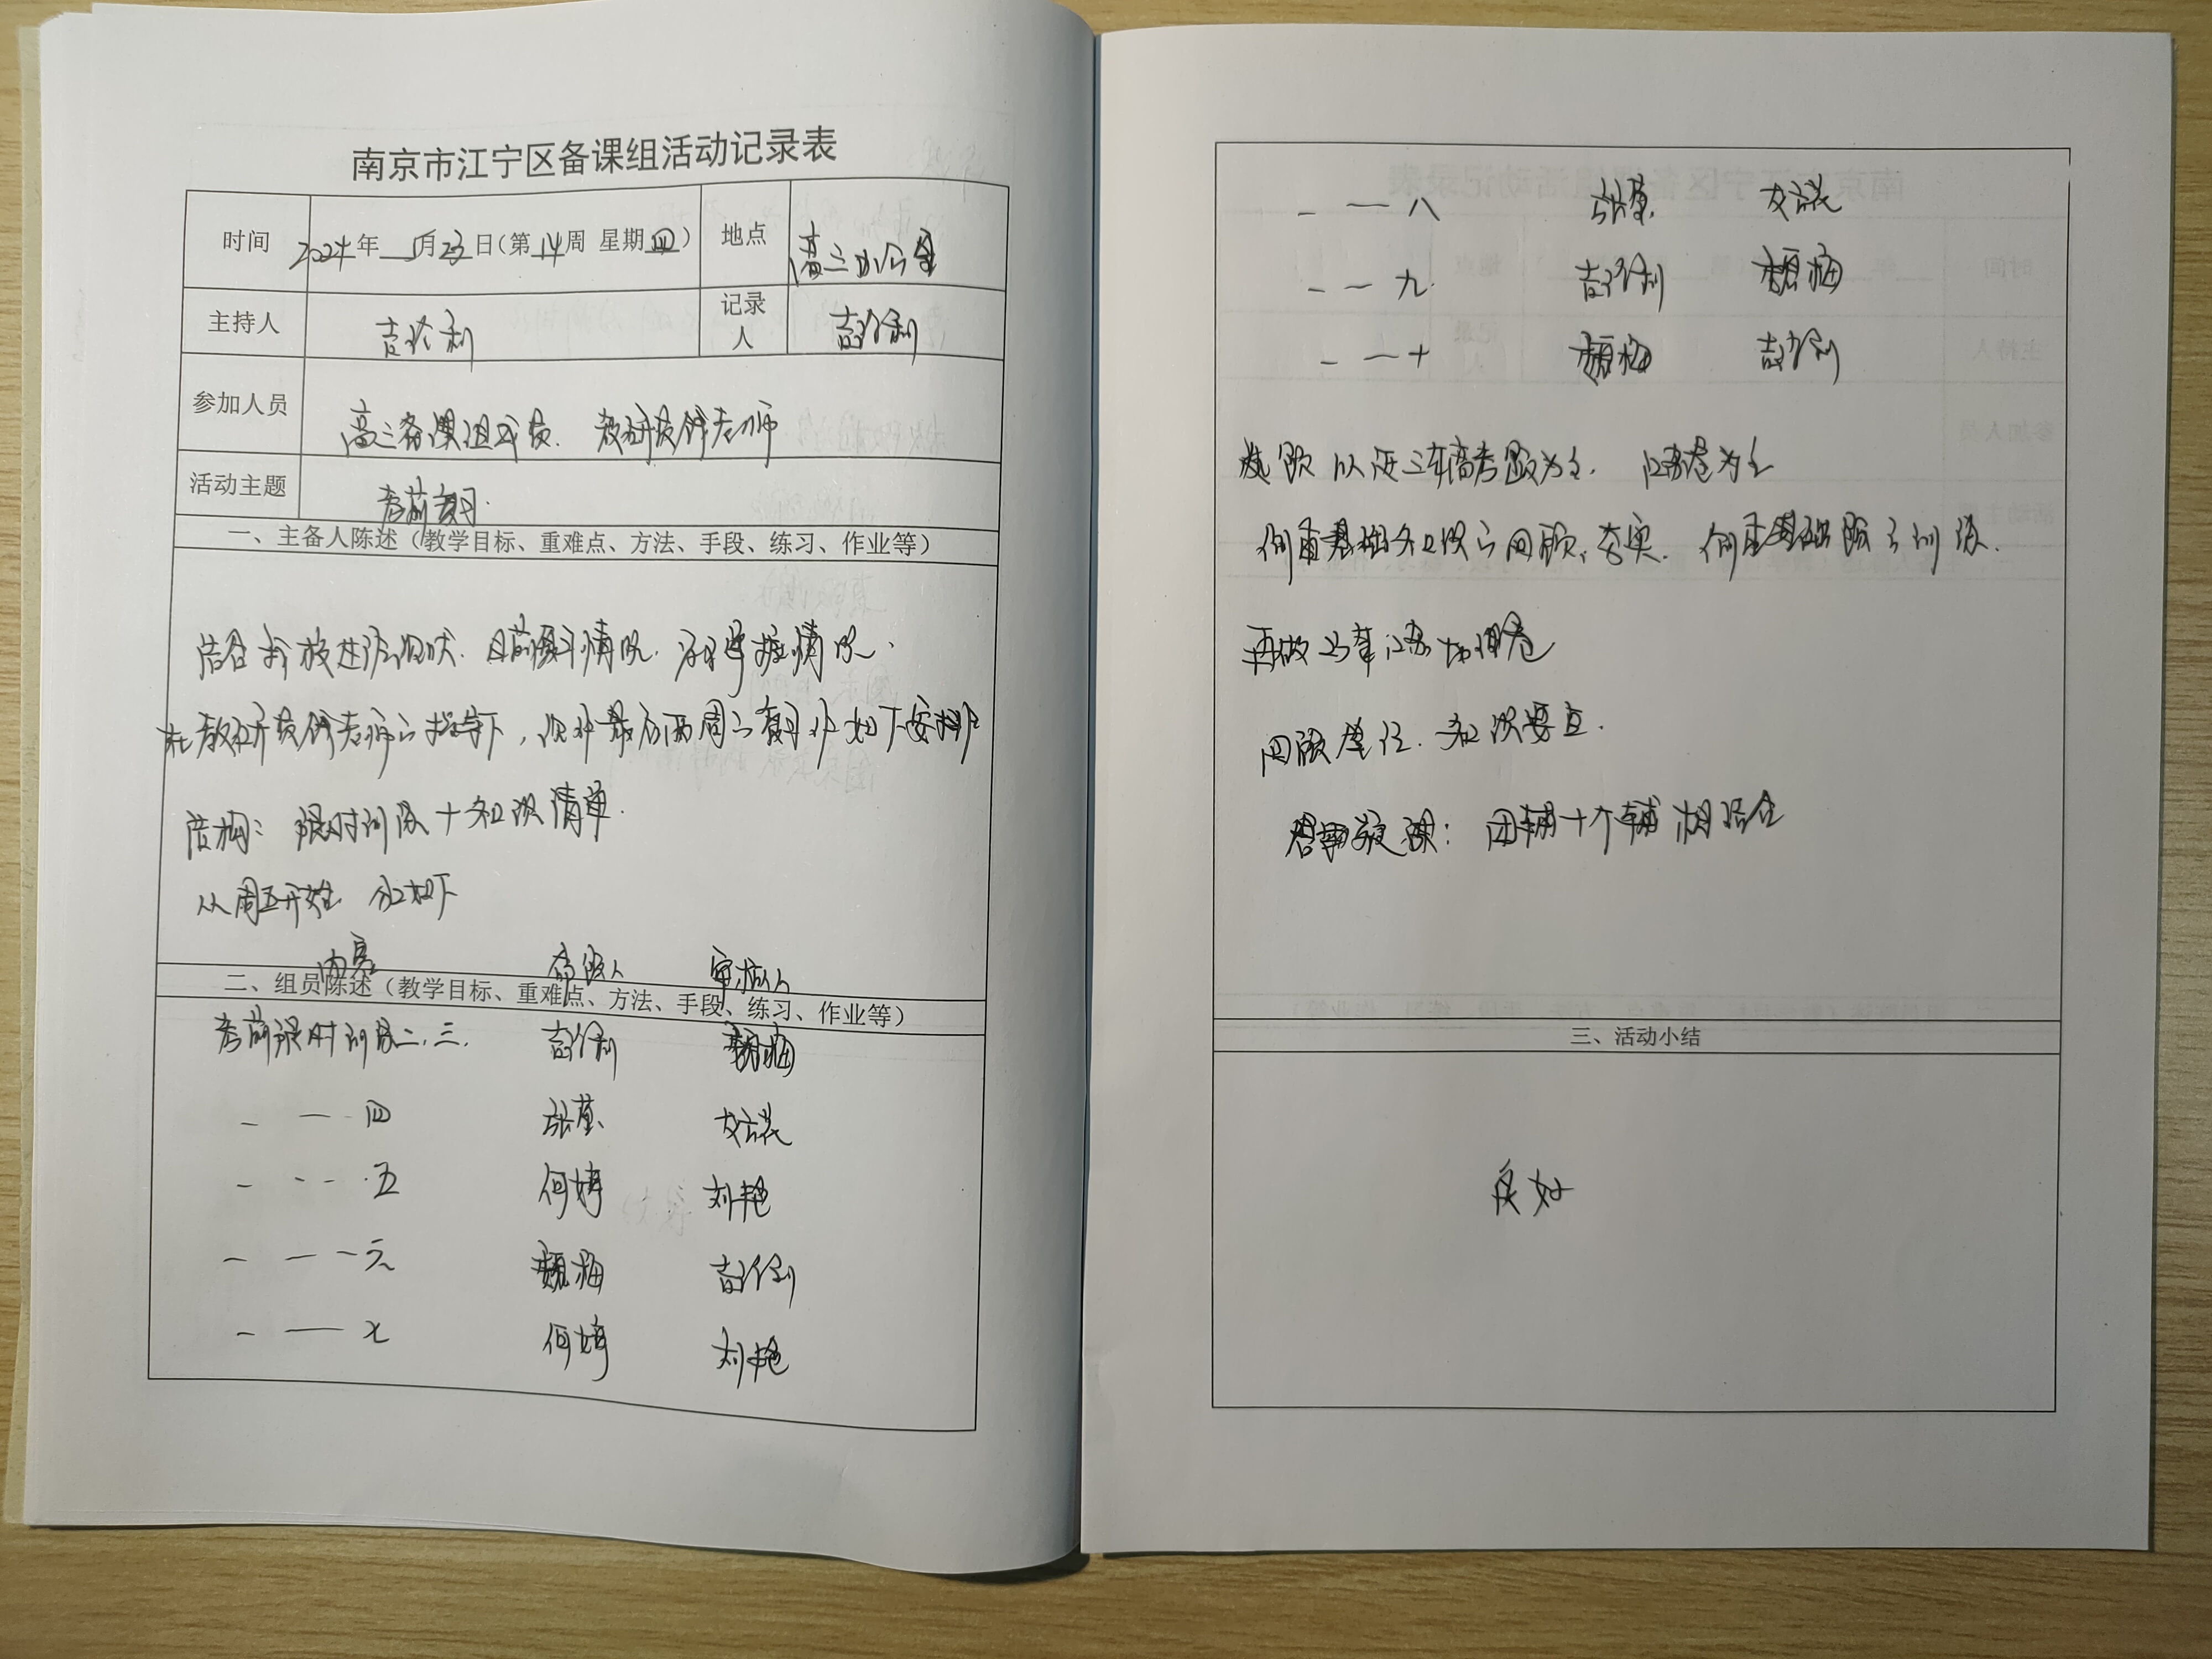 南京市江宁区备课组活动记录表
时间 2024年 5月23日（第14周 星期四） 地点 高三办公室
主持人 吉 利 记录人 吉 利
参加人员 高三备课组成员、教研员 老师
活动主题 考前复习
一、主备人陈述（教学目标、重难点、方法、手段、练习、作业等）
结合 目前复习情况、 情况、
在教研员 老师的指导下， 最后两周的复习 如下安排
结构：限时训练＋知识清单.
从周五开始 分工如下
内容 审核人
二、组员陈述（教学目标、重难点、方法、手段、练习、作业等）
考前限时训练二、三、 吉 利 梅
四 张
五 何婷 刘艳
六 梅 吉 利
七 何婷 刘艳
八 张
九 吉 利 梅
十 梅 吉 利
选题以近三年高考题为主. 江苏卷为主
侧重基础知识的回顾、夯实. 侧重基础题的训练.
再做23年江苏
回顾 知识要点.
团辅＋个辅相结合
三、活动小结
良好